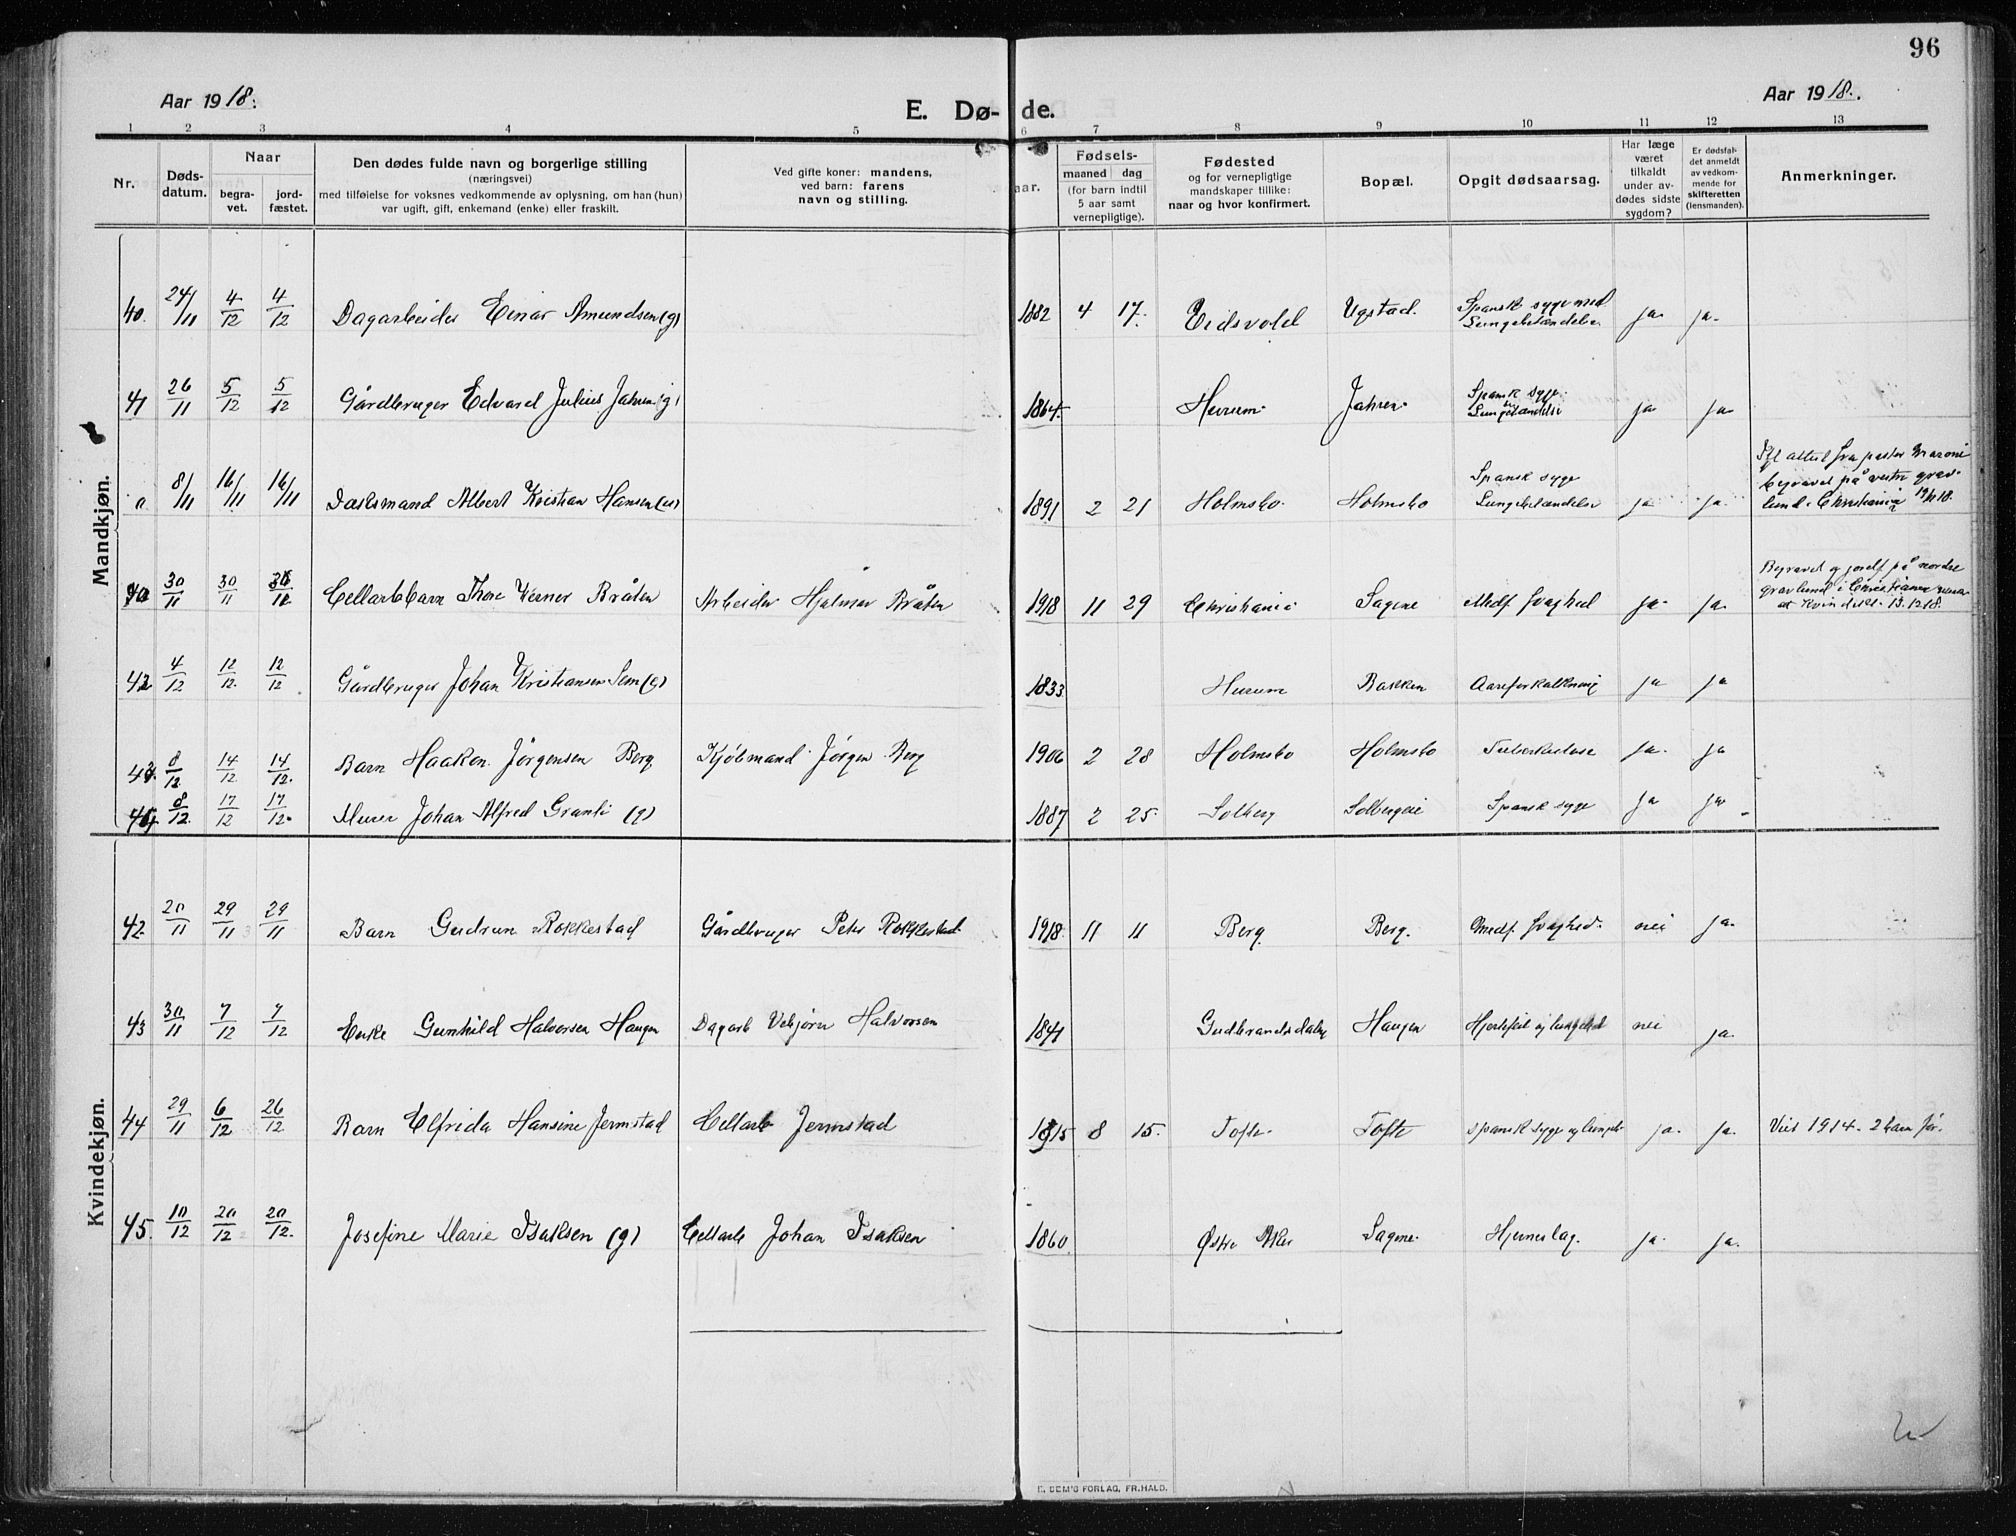 96
Aar 1918.
E. Dø-
de.
Aar 1918.
1 2 3 4 5 6 7 8 9 10 11 12 13
Nr.
Døds-
datum.
Naar
begra-
vet.
jord-
fæstet.
Den dødes fulde navn og borgerlige stilling
(næringsvei)
med tilføielse for voksnes vedkommende av oplysning, om han (hun)
var ugift, gift, enkemand (enke) eller fraskilt.
Ved gifte koner: mandens,
ved barn: farens
navn og stilling.
aar.
Fødsels-
maaned dag
(for barn indtil
5 aar samt
vernepligtige).
Fødested
og for vernepligtige
mandskaper tillike:
naar og hvor konfirmert.
Bopæl.
Opgit dødsaarsag.
Har læge
været
tilkaldt
under av-
dødes sidste
sygdom?
Er dødsfal-
det anmeldt
av vedkom-
mende for
skifteretten
(lensmanden).
Anmerkninger.
Mandkjøn.
40. 24/11 4/12 4/12 Dagarbeider Einar Amundsen (g) 1882 4 17. Eidsvold Ugstad. Spansk syge med
Lungebetændelse ja. ja.
41 26/11 5/12 5/12 Gårdbruger Edvard Julius Jahren (g) 1864. Hurum. Jahren. Spansk syge.
Lungebetændelse ja ja.
0 8/11 16/11 16/11 Albert Kristian Hansen 1891 2 21 Holmsbo. Holmsbo Spansk syge
Lungebetændelse ja ja.
begravet på vestre grav-
lund i Christiania 18.
30/11 30/11 Cellarbbarn Thore Verner Bråten Arbeider Hjalmar Bråten 1918 11 29 Christiania Sagene Medf. svaghed ja. ja.
Begravet og jordf på nordre
gravlund i Christiania
13.12.18.
42 4/12 12/12. 12/12 Gårdbruger Johan Kristiansen Sem (g) 1833 Hurum Bakken Aareforkalkning ja ja
43. 8/12. 14/12. 14/12. Barn Haakon Jørgensen Berg Kjøbmand Jørgen Berg 1906 2 28 Holmsbo Holmsbo Tuberkulose ja. ja
8/12. 17/12 17/12. Murer Johan Alfred Granli (g) 1887 2 25. Solberg Solbergeie Spansk syge ja ja
Kvindekjøn.
42. 20/11 29/11 29/11 Barn Gudrun Rokkestad Gårdbruger Peter Rokkestad 1918 11 11 Berg Berg. Medf. svaghed. nei ja.
43 30/11 7/12 7/12 Enke Gunhild Halvorsen Haugen Dagarb Halvorsen Gudbrandsdalen Haugen Hjertefeil og nei ja.
44 29/11 6/12 26/12 Barn Elfrida Hansine Jermstad Cellarb Jermstad 1915 8 15. Tofte. Tofte spansk syge og ja. ja. 1914. 2 barn før.
45. 10/12 20/12 20/12. Josefine Marie Isaksen (g) Cellarb Johan Isaksen 1860 Østre Aker Sagene. Hjerneslag. ja. ja.
E. SEM'S FORLAG, FR.HALD.